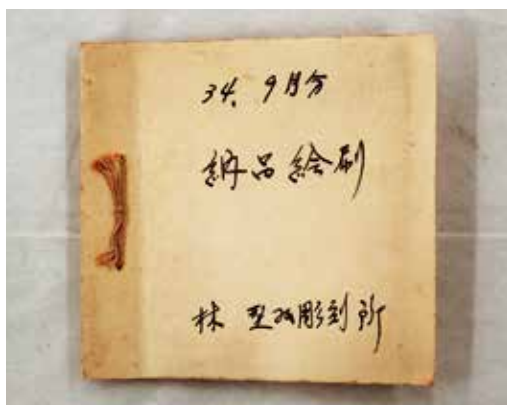 34. 9月分
納品絵刷
林 型紙彫刻所